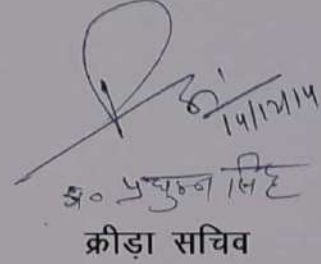 14/12/14
डॉ० प्रद्युम्न सिंह
क्रीड़ा सचिव